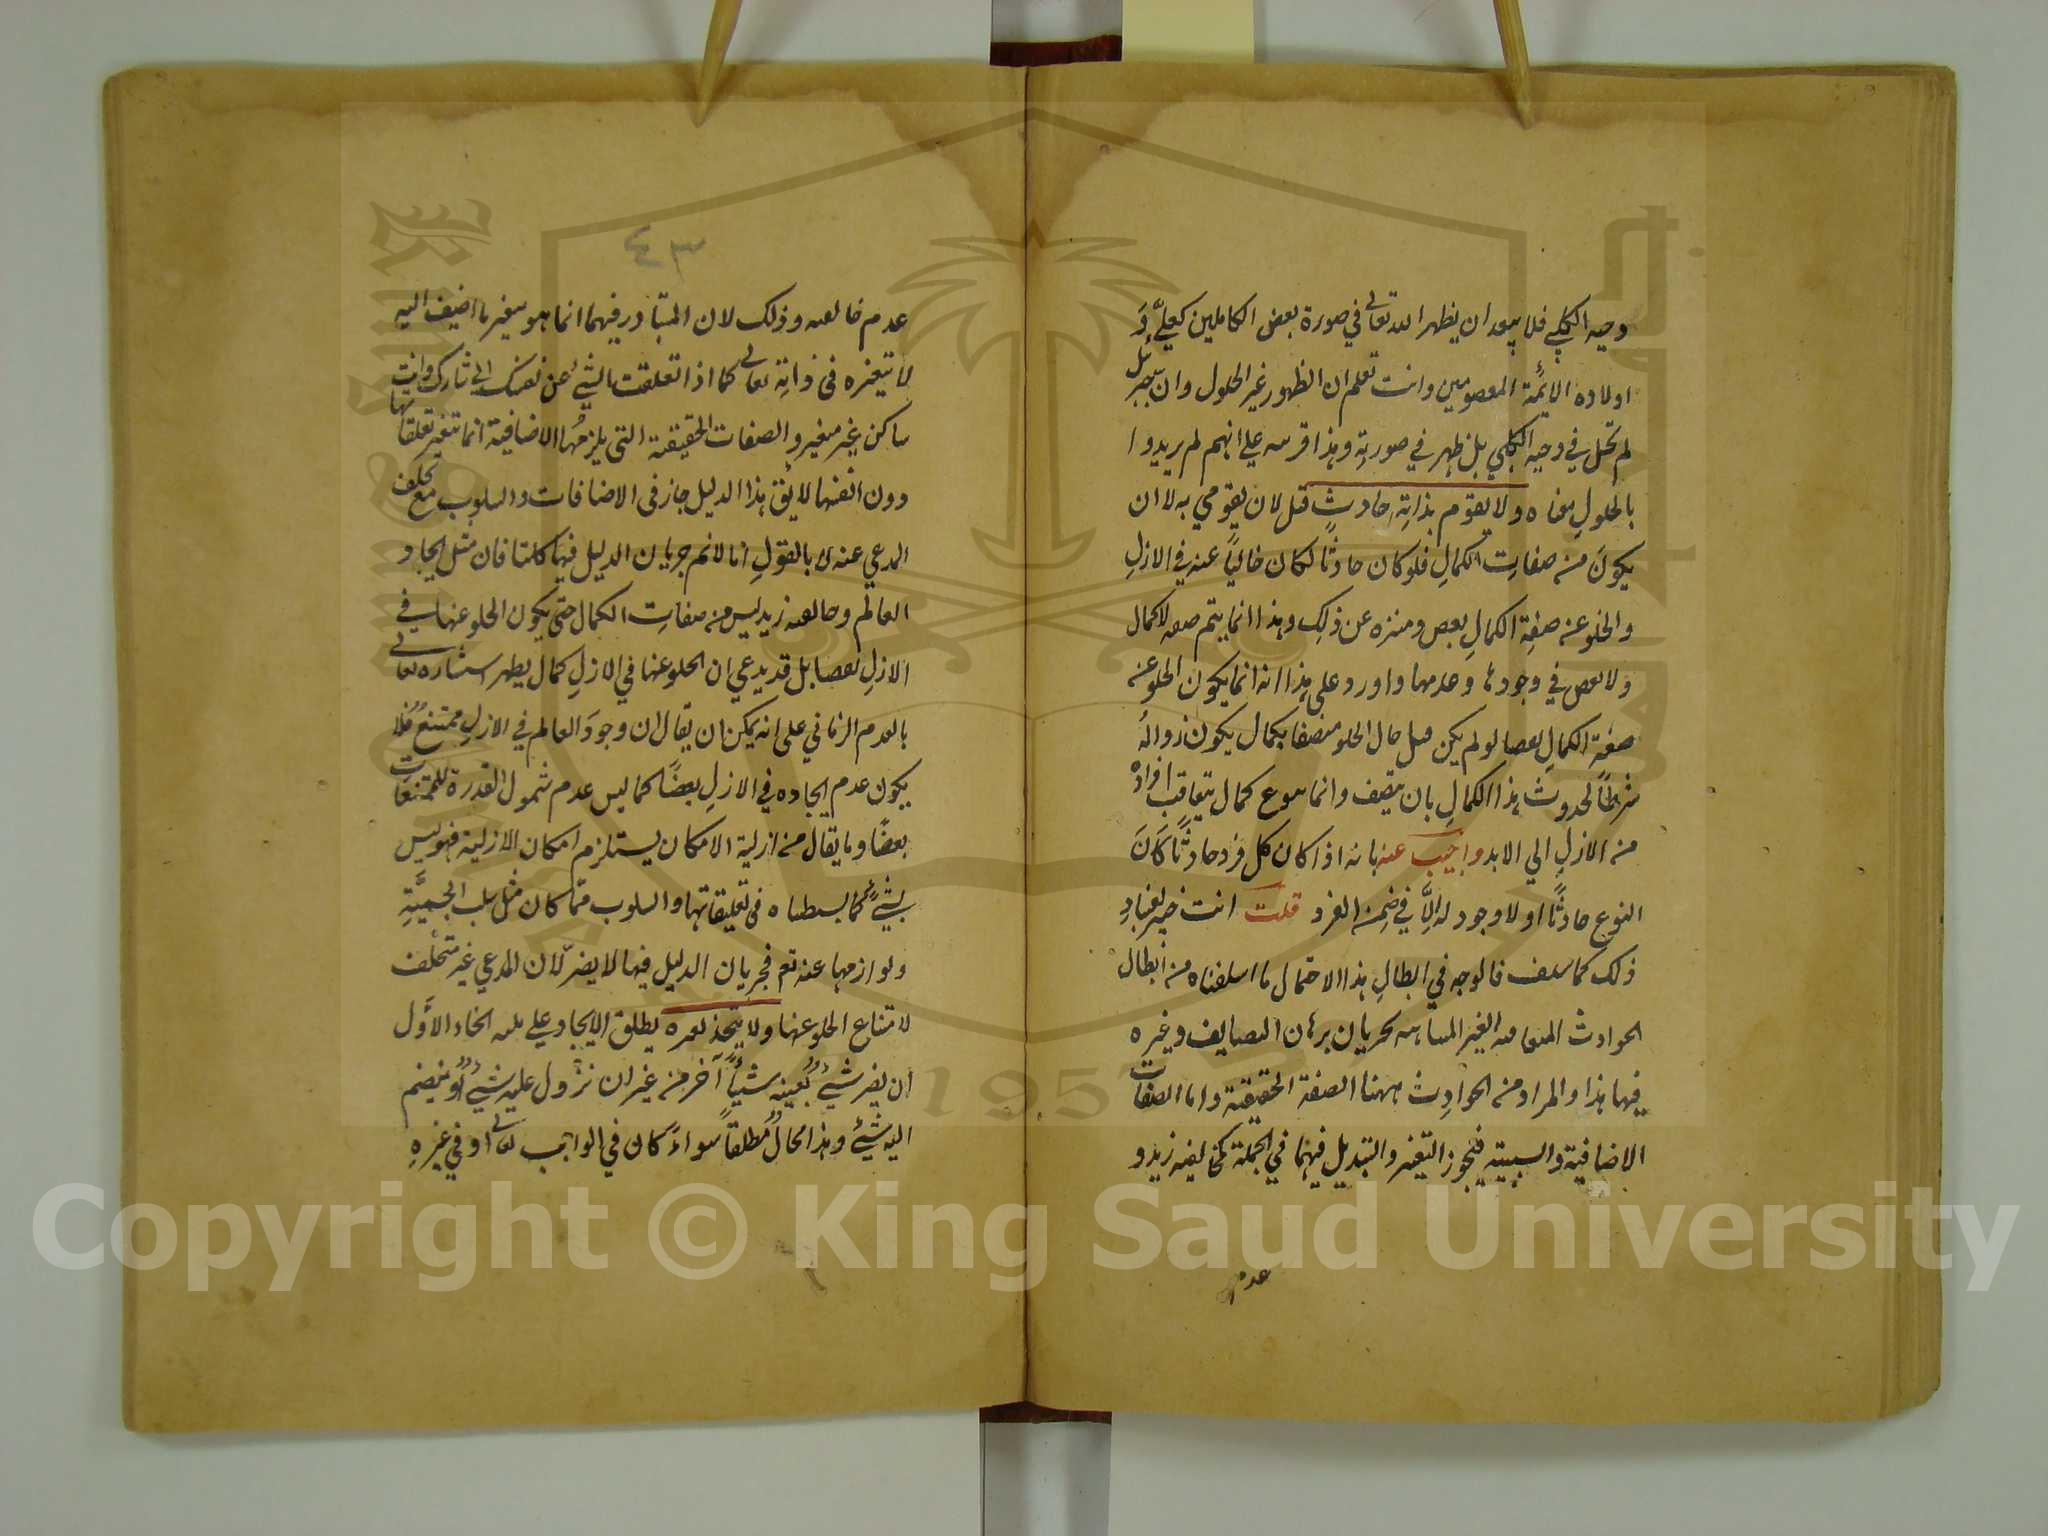 دحيه الكلبي فلا يبعد ان يظهر الله تعالى في صورة بعض الكاملين كعليّ وَ
اولاده الائمة المعصومين وانت تعلم ان الظهور غير الحلول وان جبرئيل
لم تحل في دحيه الكلبي بل ظهر في صورته وهذا على انهم لم يريدوا
بالحلول معناه ولا يقوم بذاتِه حادث قيل لان به لا ان
يكونَ من صفاتِ الكمالِ فلو كان حادثًا لكان خاليًا عنه في الازلِ
والخلو عن صفةِ الكمالِ نقص ومنزه عن ذلِك وهذا انما يتم لا كمال
ولا نقص في وجودها وعدمها واورد على هذا انه انما يكون الخلو عن
صفةِ الكمالِ نقصا لو لم يكن حال الخلو متصفا بكمال يكون زوالُه
شرطًا لحدوث هذا الكمالِ بان يتصف دائما بنوع كمال يتعاقب افراده
من الازلِ الي الابد واجيب عنه بانه اذا كان كل فرد حادثًا كَانَ
النوع حادثًا اولا وجود له اِلَّا في ضِمن الفرد قلت انت خبير بفسادِ
ذلك كما سلف فالوجه في ابطالِ هذا الاحتمال ما اسلفناه من ابطال
الحوادث المتعاقبه الغير المتناهيه بجريان برهان التضايف وغيره
فيها هذا والمراد من الحوادِث ههنا الصفة الحقيقية واما الصفات
الاضافية والسببية فيجوز التغير والتبديل فيهما في الجملة كخالقيه زيد و
عدم
٤٣
عدم خالقيه وذلك لان المتبادر فيهما انما هو بتغير ما اضيف اليه
لا بتغيره في ذاته تعالى كما اذا الشئ عن
ساكن غير متغير والصفات الحقيقة التي يلزمُها الاضافية انما تتغير تعلقاتها
دون انفسها لا يق هذا الدليل جاز في الاضافات والسلوب مع تخلف
المدعي عنه بالقولِ انا لا نم جريان الدليل فيها كلتا فان مثل ايجاد
العالم وخالقيه زيد ليس من صفاتِ الكمال حتى يكون الخلو عنها في
الازلِ نقصا بل قد يدعي ان الخلو عنها في الازلِ كمال يظهر تعالى
بالعدم الزماني على انه يمكن ان يقال ان وجودَ العالم في الازلِ ممتنعٌ فلا
يكون عدم ايجاده في الازلِ نقصًا كما ليس عدم شمول القدرة للممتنعات
نقصًا وما يقال من ازلية الامكان يستلزم امكان الازلية فهو ليس
بشئٍ كما بسطناه في تعليقاتها والسلوب مما كان مثل سلب الجسميَّةِ
ولوازمها عنه تع فجريان الدليل فيها لا يضر لان المدعي غير متخلف
لامتناع الخلو عنها ولا يتحد بغيره يطلق الايجاد على الاوَّل
ان يصير شيئٌ بعينه شيئًا آخر من غير ان نزول عليه شيئٌ او ينضم
اليه شيئ وهذا محالٌ مُطلقًا سواءً كان في الواجب تعالى او في غيرهِ
Copyright © King Saud University
1957